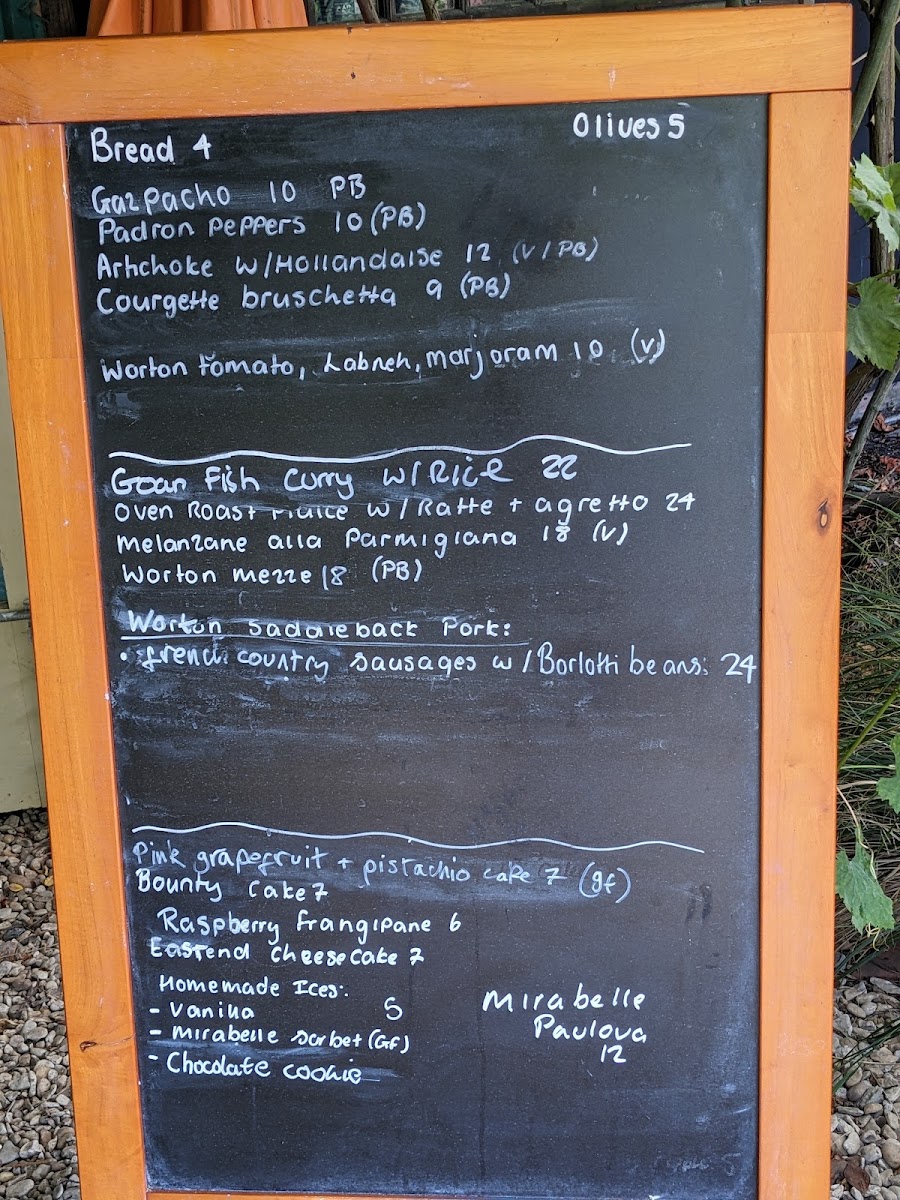 Bread 4
Olives 5
Gazpacho 10 PB
Padron Peppers 10 (PB)
Artichoke w/Hollandaise 12 (V/PB)
Courgette bruschetta 9 (PB)
Worton tomato, Labneh, marjoram 10 (V)
Goan Fish Curry w/Rice 22
Oven Roast Plaice w/Ratte + agretto 24
Melanzane alla Parmigiana 18 (V)
Worton mezze 18 (PB)
Worton Saddleback Pork:
• french country sausages w/Borlotti beans: 24
Pink grapefruit + pistachio cake 7 (gf)
Bounty Cake 7
Raspberry frangipane 6
Eastend cheesecake 7
Homemade Ices:
- Vanilla 5
- Mirabelle sorbet (GF)
- Chocolate cookie
Mirabelle
Pavlova
12